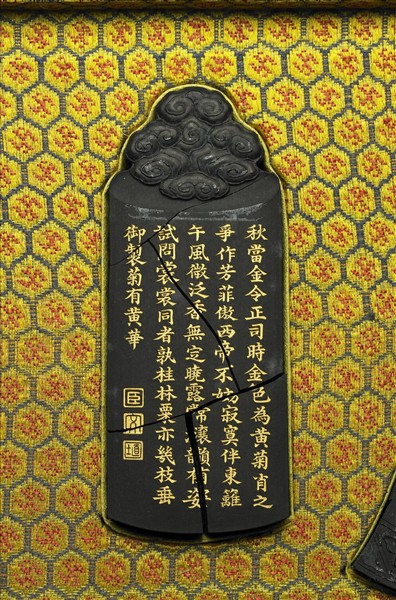 秋當金令正司時金色為黃菊肖之
爭作芳菲傲西帝不妨寂寞伴東籬
午風微泛香無定曉露常瀼韻有姿
試問裳裳同者孰桂林粟亦幾枝垂
御製菊有黃華
臣文埴